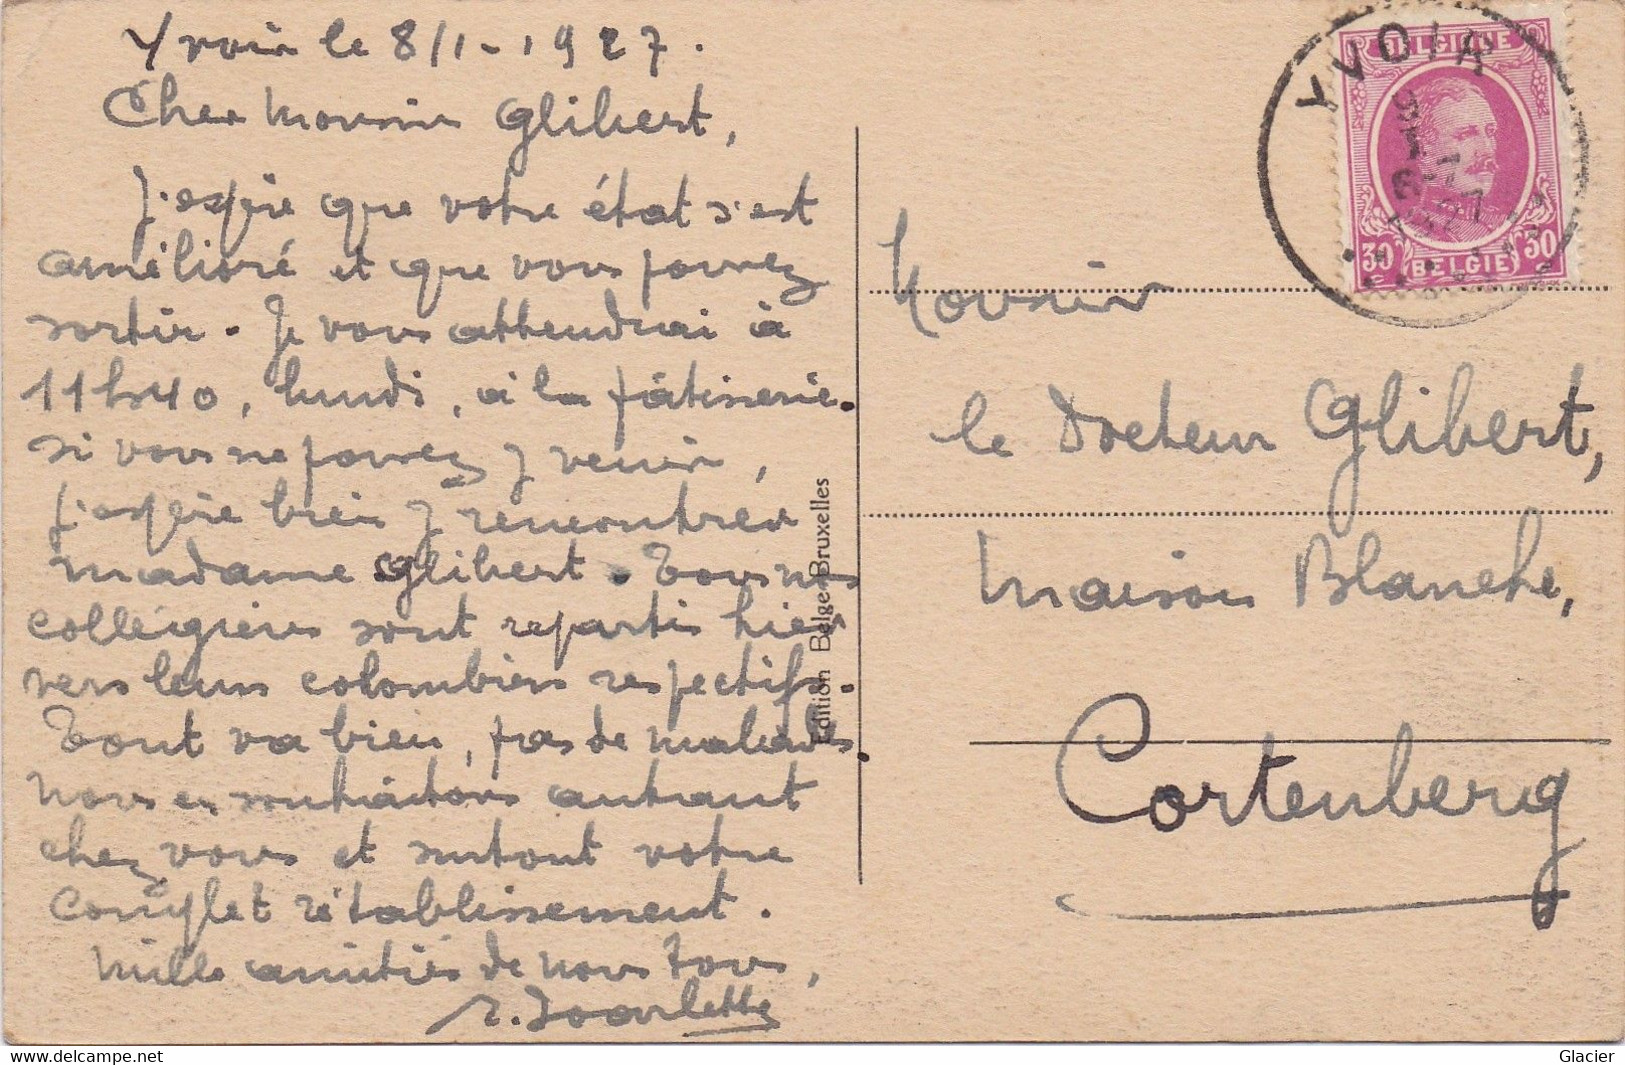 Yvoir le 8/1-1927.
Cher Monsieur Glibert,
J'espère que votre état s'est
amélioré et que vous pourrez
sortir. Je vous attendrai à
11h40, lundi, à la pâtisserie.
si vous ne pouvez y venir,
j'espère bien y rencontrer
madame Glibert. Tous nos
collégiens sont repartis hier
vers leurs colombiers respectifs.
Tout va bien, pas de malades.
Nous en souhaitons autant
chez vous et surtout votre
complet rétablissement.
Mille amitiés de nous tous,
Edition Belge-Bruxelles
YVOIR
8 1 1927
BELGIQUE
30 BELGIE 30
Monsieur
le Docteur Glibert,
Maison Blanche,
Cortenberg
Glacier
https://www.delcampe.net